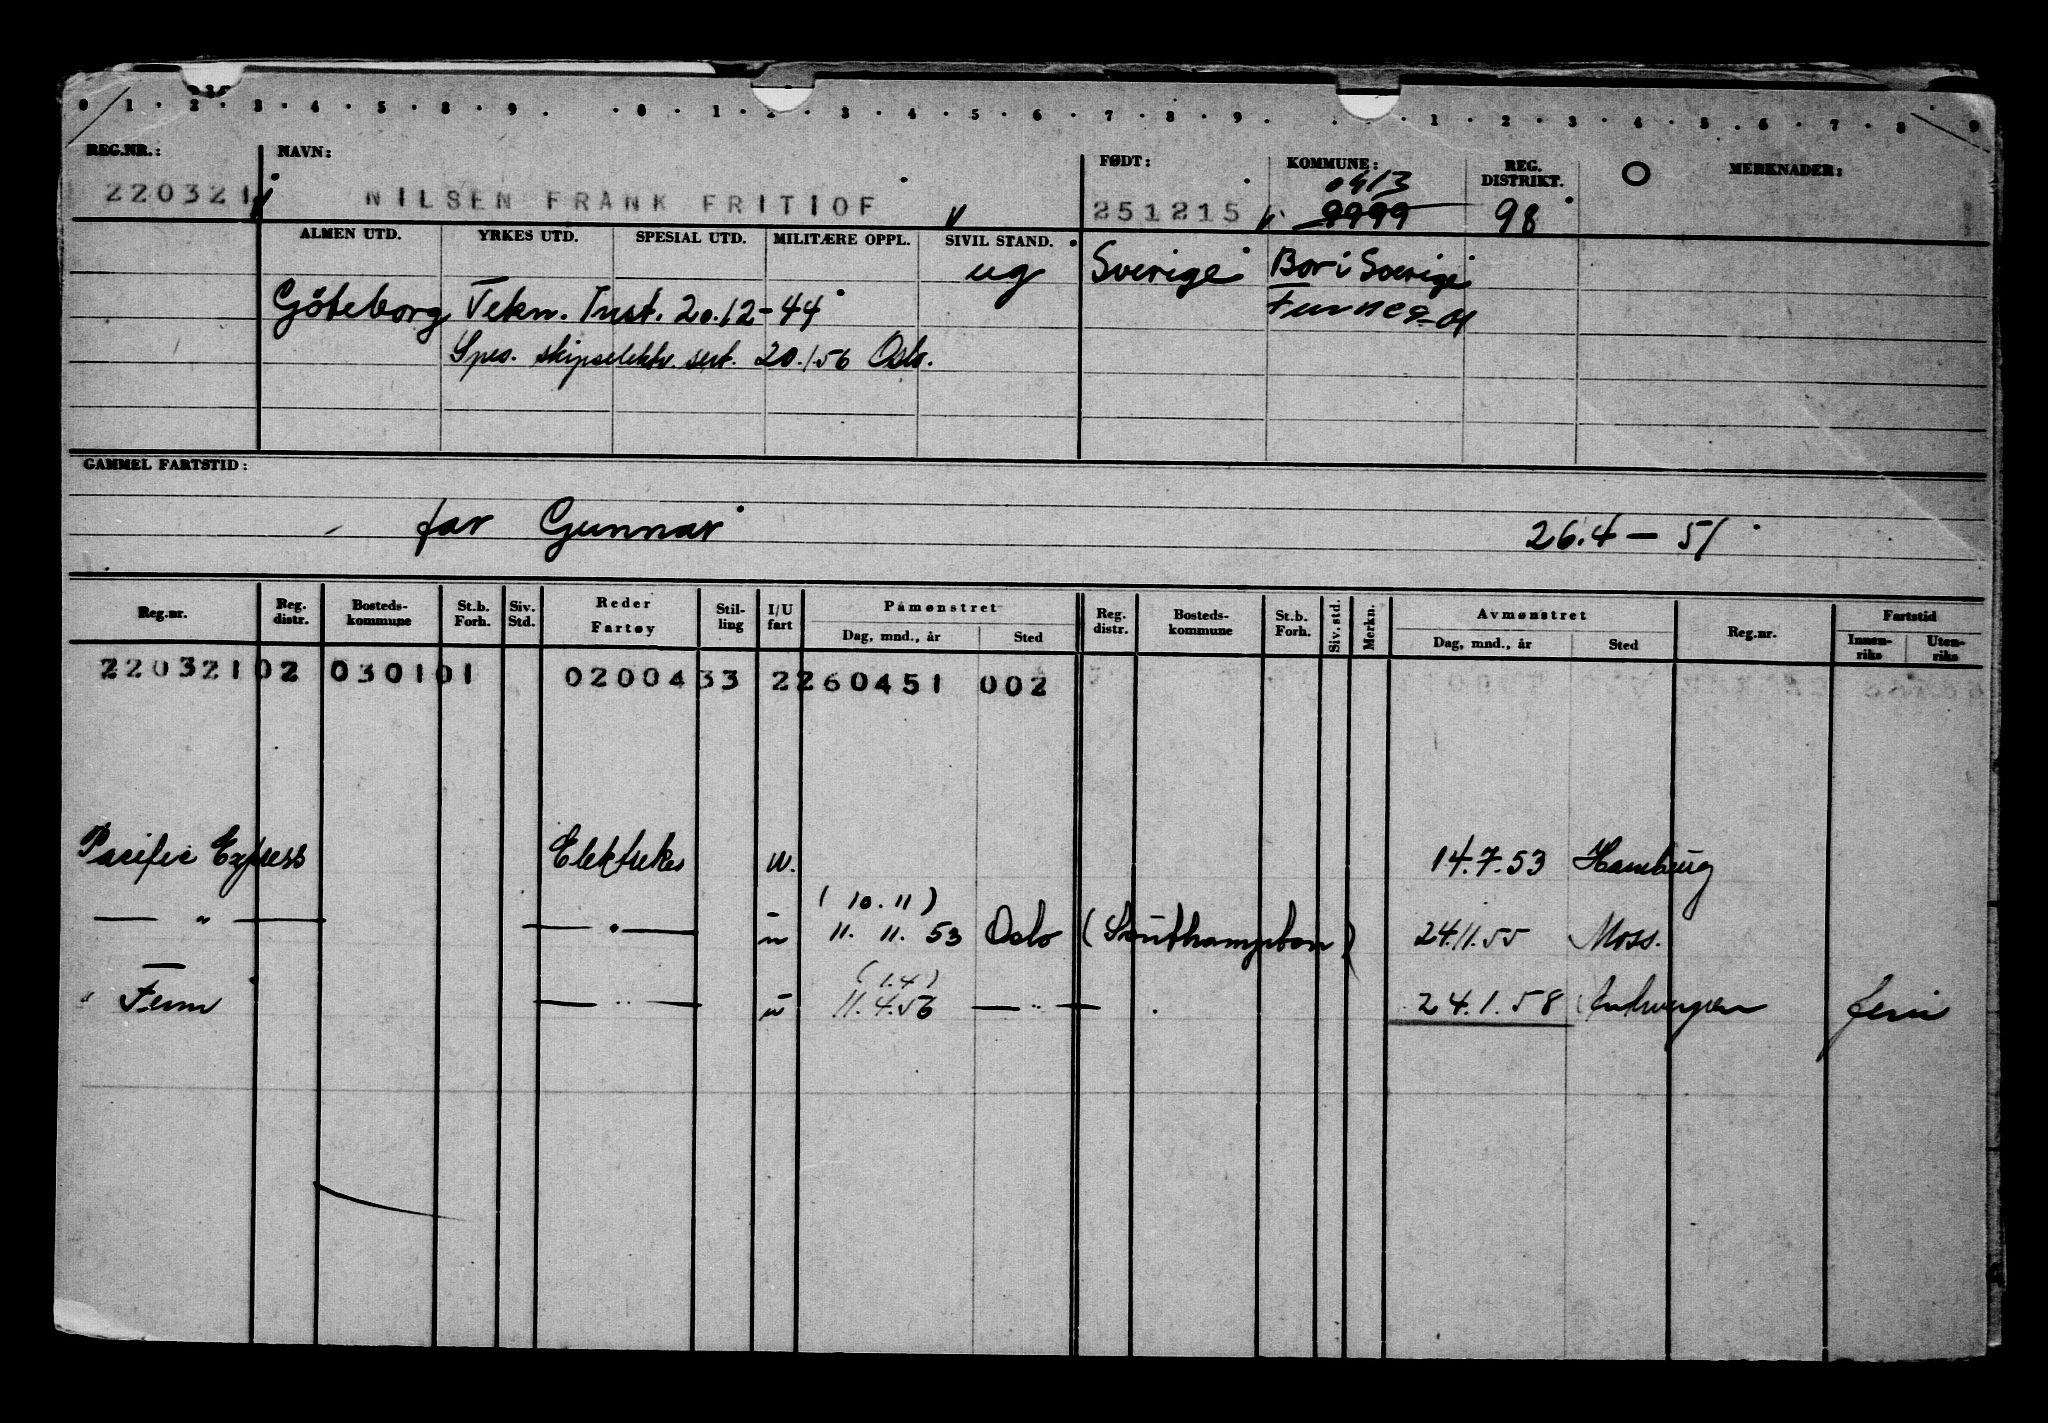 0 · 1 · 2 · 3 · 4 · 5 · 8 · 9 · · 0 · 1 · 2 · 3 · 4 · 5 · 6 · 7 · 8 · 9 · · 1 · 2 · 3 · 4 · 5 · 6 · 7 · 8 · 9
REG.NR.: NAVN: FØDT: KOMMUNE: REG. DISTRIKT. MERKNADER:
0413
220321 NILSEN FRANK FRITIOF 251215 9999 98
ALMEN UTD. YRKES UTD. SPESIAL UTD. MILITÆRE OPPL. SIVIL STAND.
ug Sverige Bor i Sverige
Göteborg Tekn. Inst. 20.12-44
Spes. skipselektr. sert. 20.1.56 Oslo.
GAMMEL FARTSTID:
far Gunnar 26.4-51
Reg.nr. Reg. distr. Bosteds-kommune St.b. Forh. Siv. Std. Reder Fartøy Stil-ling I/U fart Påmønstret Reg. distr. Bosteds-kommune St.b. Forh. Siv. std. Merkn. Avmønstret Reg.nr. Fartstid
Dag, mnd., år Sted Dag, mnd., år Sted Innen-riks Uten-riks
22032102 030101 0200433 2260451 002
Pacific Express Elektriker u. 14.7.53 Hamburg
(10.11)
— " — — " — u 11.11.53 Oslo (Southampton) 24.11.55 Moss.
(1.4)
" Fern — " — u 11.4.56 — " — 24.1.58 Antwerpen ferie